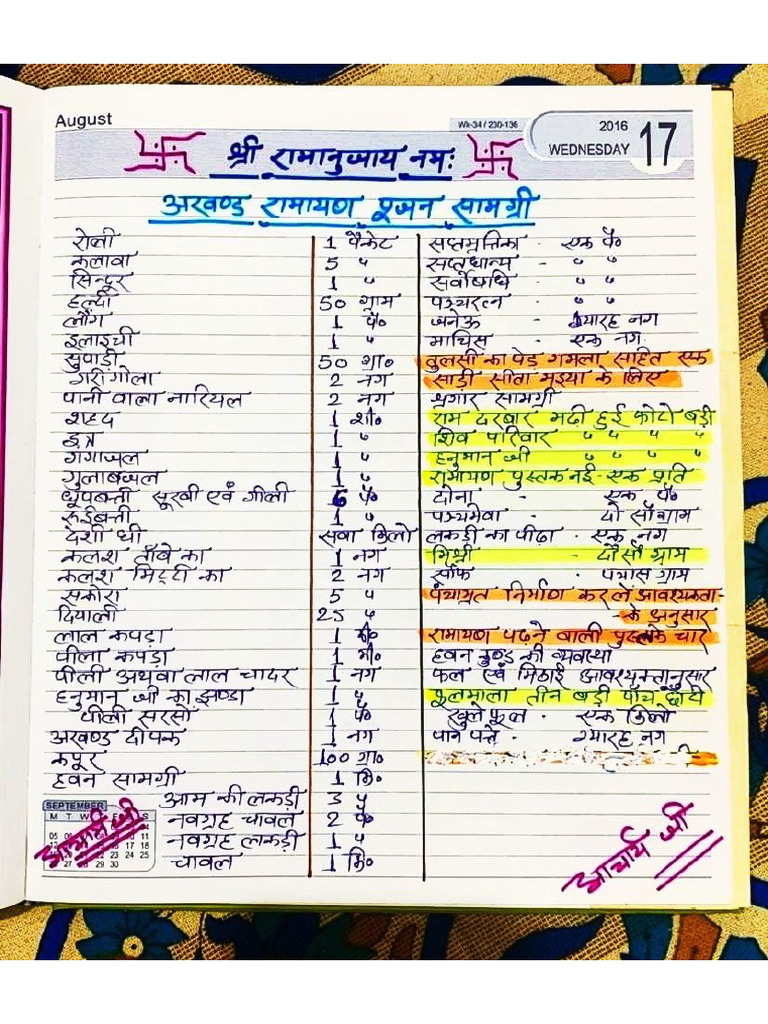 August
Wk-34 / 230-136
2016
WEDNESDAY 17
श्री रामानुजाय नमः
अखण्ड रामायण पूजन सामग्री
रोली 1 पैकेट
कलावा 5 "
सिन्दूर 1 "
हल्दी 50 ग्राम
लौंग 1 पै०
इलाइची 1 "
सुपाड़ी 50 ग्रा०
गरी गोला 2 नग
पानी वाला नारियल 2 नग
शहद 1 शी०
इत्र 1 "
गंगाजल 1 "
गुलाबजल 1 "
धूपबत्ती सूखी एवं गीली 6 पै०
रूईबत्ती 1 "
देशी घी सवा किलो
कलश ताँबे का 1 नग
कलश मिट्टी का 2 नग
सकोरा 5 "
दियाली 25 "
लाल कपड़ा 1 मी०
पीला कपड़ा 1 मी०
पीली अथवा लाल चादर 1 नग
हनुमान जी का झण्डा 1 "
पीली सरसों 1 पै०
अखण्ड दीपक 1 नग
कपूर 100 ग्रा०
हवन सामग्री 1 कि०
आम की लकड़ी 3 "
नवग्रह चावल 2 पै०
नवग्रह लकड़ी 1 "
चावल 1 कि०
सप्तमृत्तिका - एक पै०
सप्तधान्य - " "
सर्वोषधि - " "
पञ्चरत्न - " "
जनेऊ - ग्यारह नग
माचिस - एक नग
तुलसी का पेड़ गमला सहित एक
साड़ी सीता मइया के लिए
श्रृंगार सामग्री
राम दरबार मढ़ी हुई फोटो बड़ी
शिव परिवार " " " "
हनुमान जी " " " "
रामायण पुस्तक नई - एक प्रति
दोना - एक पै०
पञ्चमेवा - दो सौ ग्राम
लकड़ी का पीढ़ा - एक नग
मिश्री - दो सौ ग्राम
सौंफ - पचास ग्राम
पंचामृत निर्माण कर लें आवश्यकता-
-के अनुसार
रामायण पढ़ने वाली पुस्तके चार
हवन कुण्ड की व्यवस्था
फल एवं मिठाई आवश्यक्तानुसार
फूलमाला तीन बड़ी पाँच छोटी
खुले फूल - एक किलो
पान पत्ते - ग्यारह नग
SEPTEMBER
आचार्य श्री
आचार्य श्री